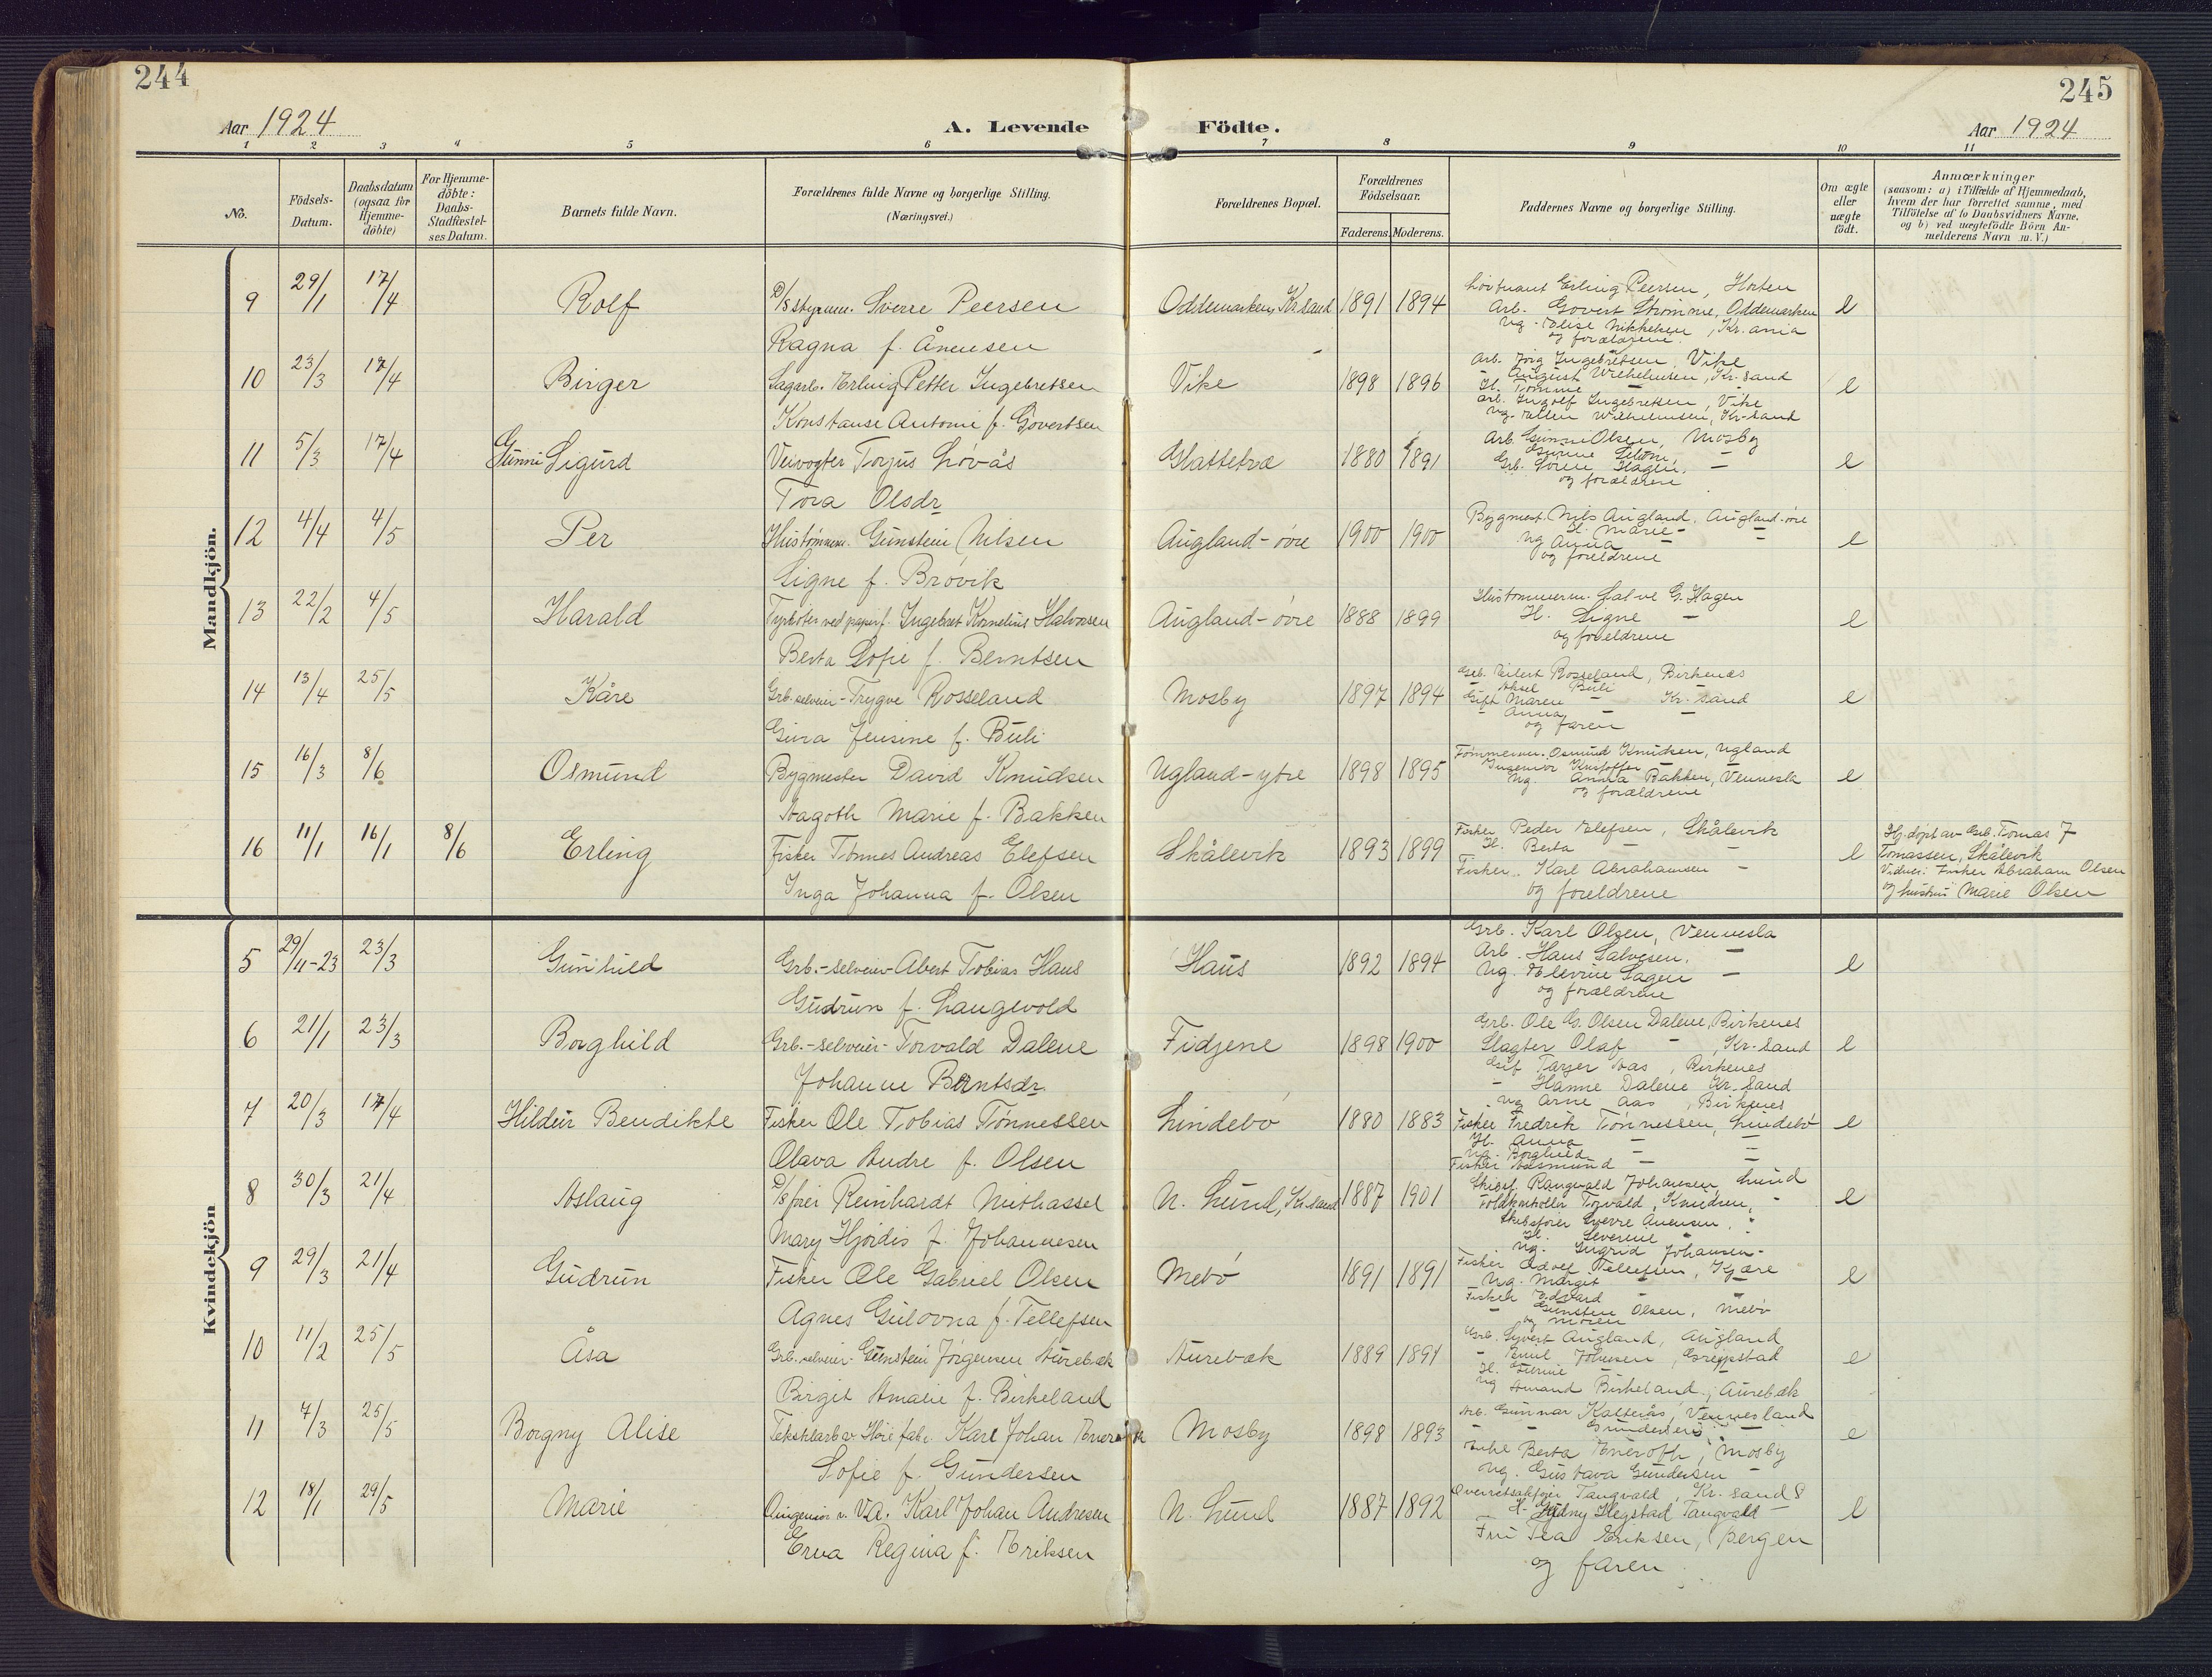 244
245
Aar 1924
A. Levende
Födte.
Aar 1924
1 2 3 4 5 6 7 8 9 10 11
No.
Födsels-
Datum.
Daabsdatum
(ogsaa for
Hjemme-
döbte)
For Hjemme-
döbte:
Daabs-
Stadfæstel-
ses Datum.
Barnets fulde Navn.
Forældrenes fulde Navne og borgerlige Stilling.
(Næringsvei.)
Forældrenes Bopæl.
Forældrenes
Födselsaar.
Faderens. Moderens.
Faddernes Navne og borgerlige Stilling.
Om ægte
eller
uægte
födt.
Anmærkninger
(saasom: a) i Tilfælde af Hjemmedaab,
hvem der har forrettet samme, med
Tilföielse af to Daabsvidners Navne,
og b) ved uægtefödte Börn An-
melderens Navn m. V.)
Mandkjön.
9 29/1 17/4 Rolf D/S styrm. Sverre Peersen Oddemarken, Kr.sand 1891 1894 e
Ragna f. Ånensen
Løitnant Erling Peersen, Horten
Arb. Govert Strømme, Oddemarken
Ug. Elise Mikkelsen, Kr.ania
og forældrene.
10 23/3 17/4 Birger Sagarb. Erling Petter Ingebretsen Vike 1898 1896 e
Konstanse Antonie f. Govertsen
Arb. Ingebretsen, Vike
August Wilhelmsen, Kr.sand
H. Tomine
Arb. Ingolf Ingebretsen, Vike
Ug. Ellen Wilhelmsen, Kr-sand
11 5/3 17/4 Gunni Sigurd Veivogter Torjus Løvås Glattetræ 1880 1891 e
Tora Olsdr
Arb. Gunni Olsen, Mosby
Grb. Hagen, —
og forældrene
12 4/4 4/5 Per Hustømm. Gunstein Nilsen Augland-øvre 1900 1900 e
Signe f. Brøvik
Bygmest. Nils Augland, Augland-øvre
H. Marie —
Ug Anna —
og foreldrene
13 22/2 4/5 Harald Fyrbøter ved papirf. Ingebret Kornelius Halvorsen Augland-øvre 1888 1899 e
Berta Sofie f. Berntsen
Hustømmerm. Salve G. Hagen
H. Signe —
og foreldrene
14 13/4 25/5 Kåre Grb.selveier- Trygve Rosseland Mosby 1897 1894 e
Gina Jensine f. Buli
Grb. Eilert Rosseland, Birkenes
— Aksel Buli —
Gift Maren — Kr-sand
— Anna — —
og faren
15 16/3 8/6 Osmund Bygmester David Knudsen Ugland-ytre 1898 1895 e
Dagoth Marie f. Bakken
Tømmerm. Osmund Knudsen, Ugland
Ingeniør Kristoffer —
Ug. Anna Bakken, Vennesla
og forældrene
16 11/1 16/1 8/6 Erling Fisker Tønnes Andreas Elefsen Skålevik 1893 1899 e
Inga Johanna f. Olsen
Fisker Peder Elefsen, Skålevik
H. Berta — —
Fisker. Karl Abrahamsen —
og foreldrene
Hj.døpt av Grb. Tomas T
Tomassen, Skålevik
Vidner: Fisker Abraham Olsen
og hustru Marie Olsen
Kvindekjön
5 29/11-23 23/3 Gunhild Grb.-selveier- Abert Tobias Haus Haus 1892 1894 e
Gudrun f. Langevold
Grb. Karl Olsen, Vennesla
Arb. Hans Salvesen, —
Ug. Elevine Sagen —
og forældrene
6 21/1 23/3 Borghild Grb.-selveier- Torvald Dalene Fidjene 1898 1900 e
Johanne Berntsdr.
Grb. Ole G. Olsen Dalene, Birkenes
Slagter Olaf — , Kr-sand
Gift Aas, Birkenes
— Hanne Dalene Kr-sand
Ug Arne Aas, Birkenes
7 20/3 17/4 Hildur Bendikte Fisker Ole Tobias Tønnessen Lindebø 1880 1883 e
Olava Andre f. Olsen
Fisker Fredrik Tønnessen, Lindebø
H. Anna — —
Ug. Borghild — —
Fisker Aasmund —
8 30/3 21/4 Aslaug D/S fører Reinhardt Mithassel N. Lund, Kr.sand 1887 1901 e
Mary Hjørdis f. Johannesen
Skibsf. Rangvald Johansen, Lund
Toldkontrollør Torvald Knudsen, "
Skibsfører Sverre Anensen, "
H. Severine "
Ug. Ingrid Johansen -
9 29/3 21/4 Gudrun Fisker Ole Gabriel Olsen Mebø 1891 1891 e
Agnes Gulovna f. Tellefsen
Fisker Adolf Tellefsen, Kjære
Ug. Margit — —
Fisker Edvard — —
— Gunsten Olsen, Mebø
og moren
10 11/2 25/5 Åsa Grb.selveier- Gunstein Jørgensen Aurebæk Aurebæk 1889 1891 e
Birgit Amalie f. Birkeland
Grb. Syvert Augland, Augland
— Emil Johnsen, Greipstad
H. —
Ug Amand Birkeland, Aurebæk
11 7/3 25/5 Borgny Alise Tekstilarb. v. Høie fabr. Karl Johan Mosby 1898 1893 e
Sofie f. Gundersen
Arb. Gunnar Kalterås, Vennesland
— — Gundersen
Enke Berta Eneroth, Mosby
Ug. Gustava Gundersen —
12 18/1 29/5 Marie v. V.A. Karl Johan Andresen N. Lund 1887 1892 e
Erna Regina f. Eriksen
Overretssakfører Tangvald, Kr.sand S
H. Gudny Hegstad Tangvald —
Fru Tea Eriksen, Bergen
og faren